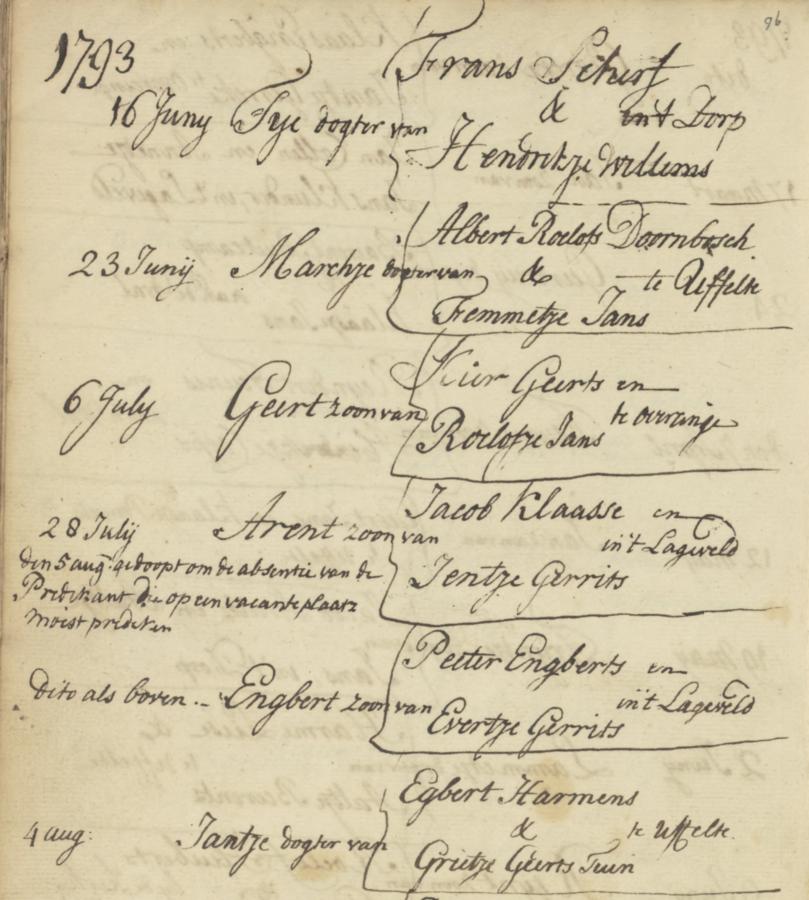 96
1793
Frans Scherf
16 Juny Fije dogter van & in't Dorp
Hendrikje Willems
Albert Roelofs Doornbosch
23 Junij Marchje dogter van & te Uffelte
Femmetje Jans
Geerts en
6 July Geert zoon van te overeinge
Roelofje Jans
Jacob Klaasse en
28 July Arent zoon van in't Lageveld
den 5 aug: gedoopt om de absentie van de
Jentje Gerrits
Predikant die op een vacante plaats
moist prediken
Peeter Engberts en
dito als boven .- Engbert zoon van in't Lageveld
Evertje Gerrits
Egbert Harmens
4 aug: Jantje dogter van & te Uffelte.
Grietje Geerts Tuin